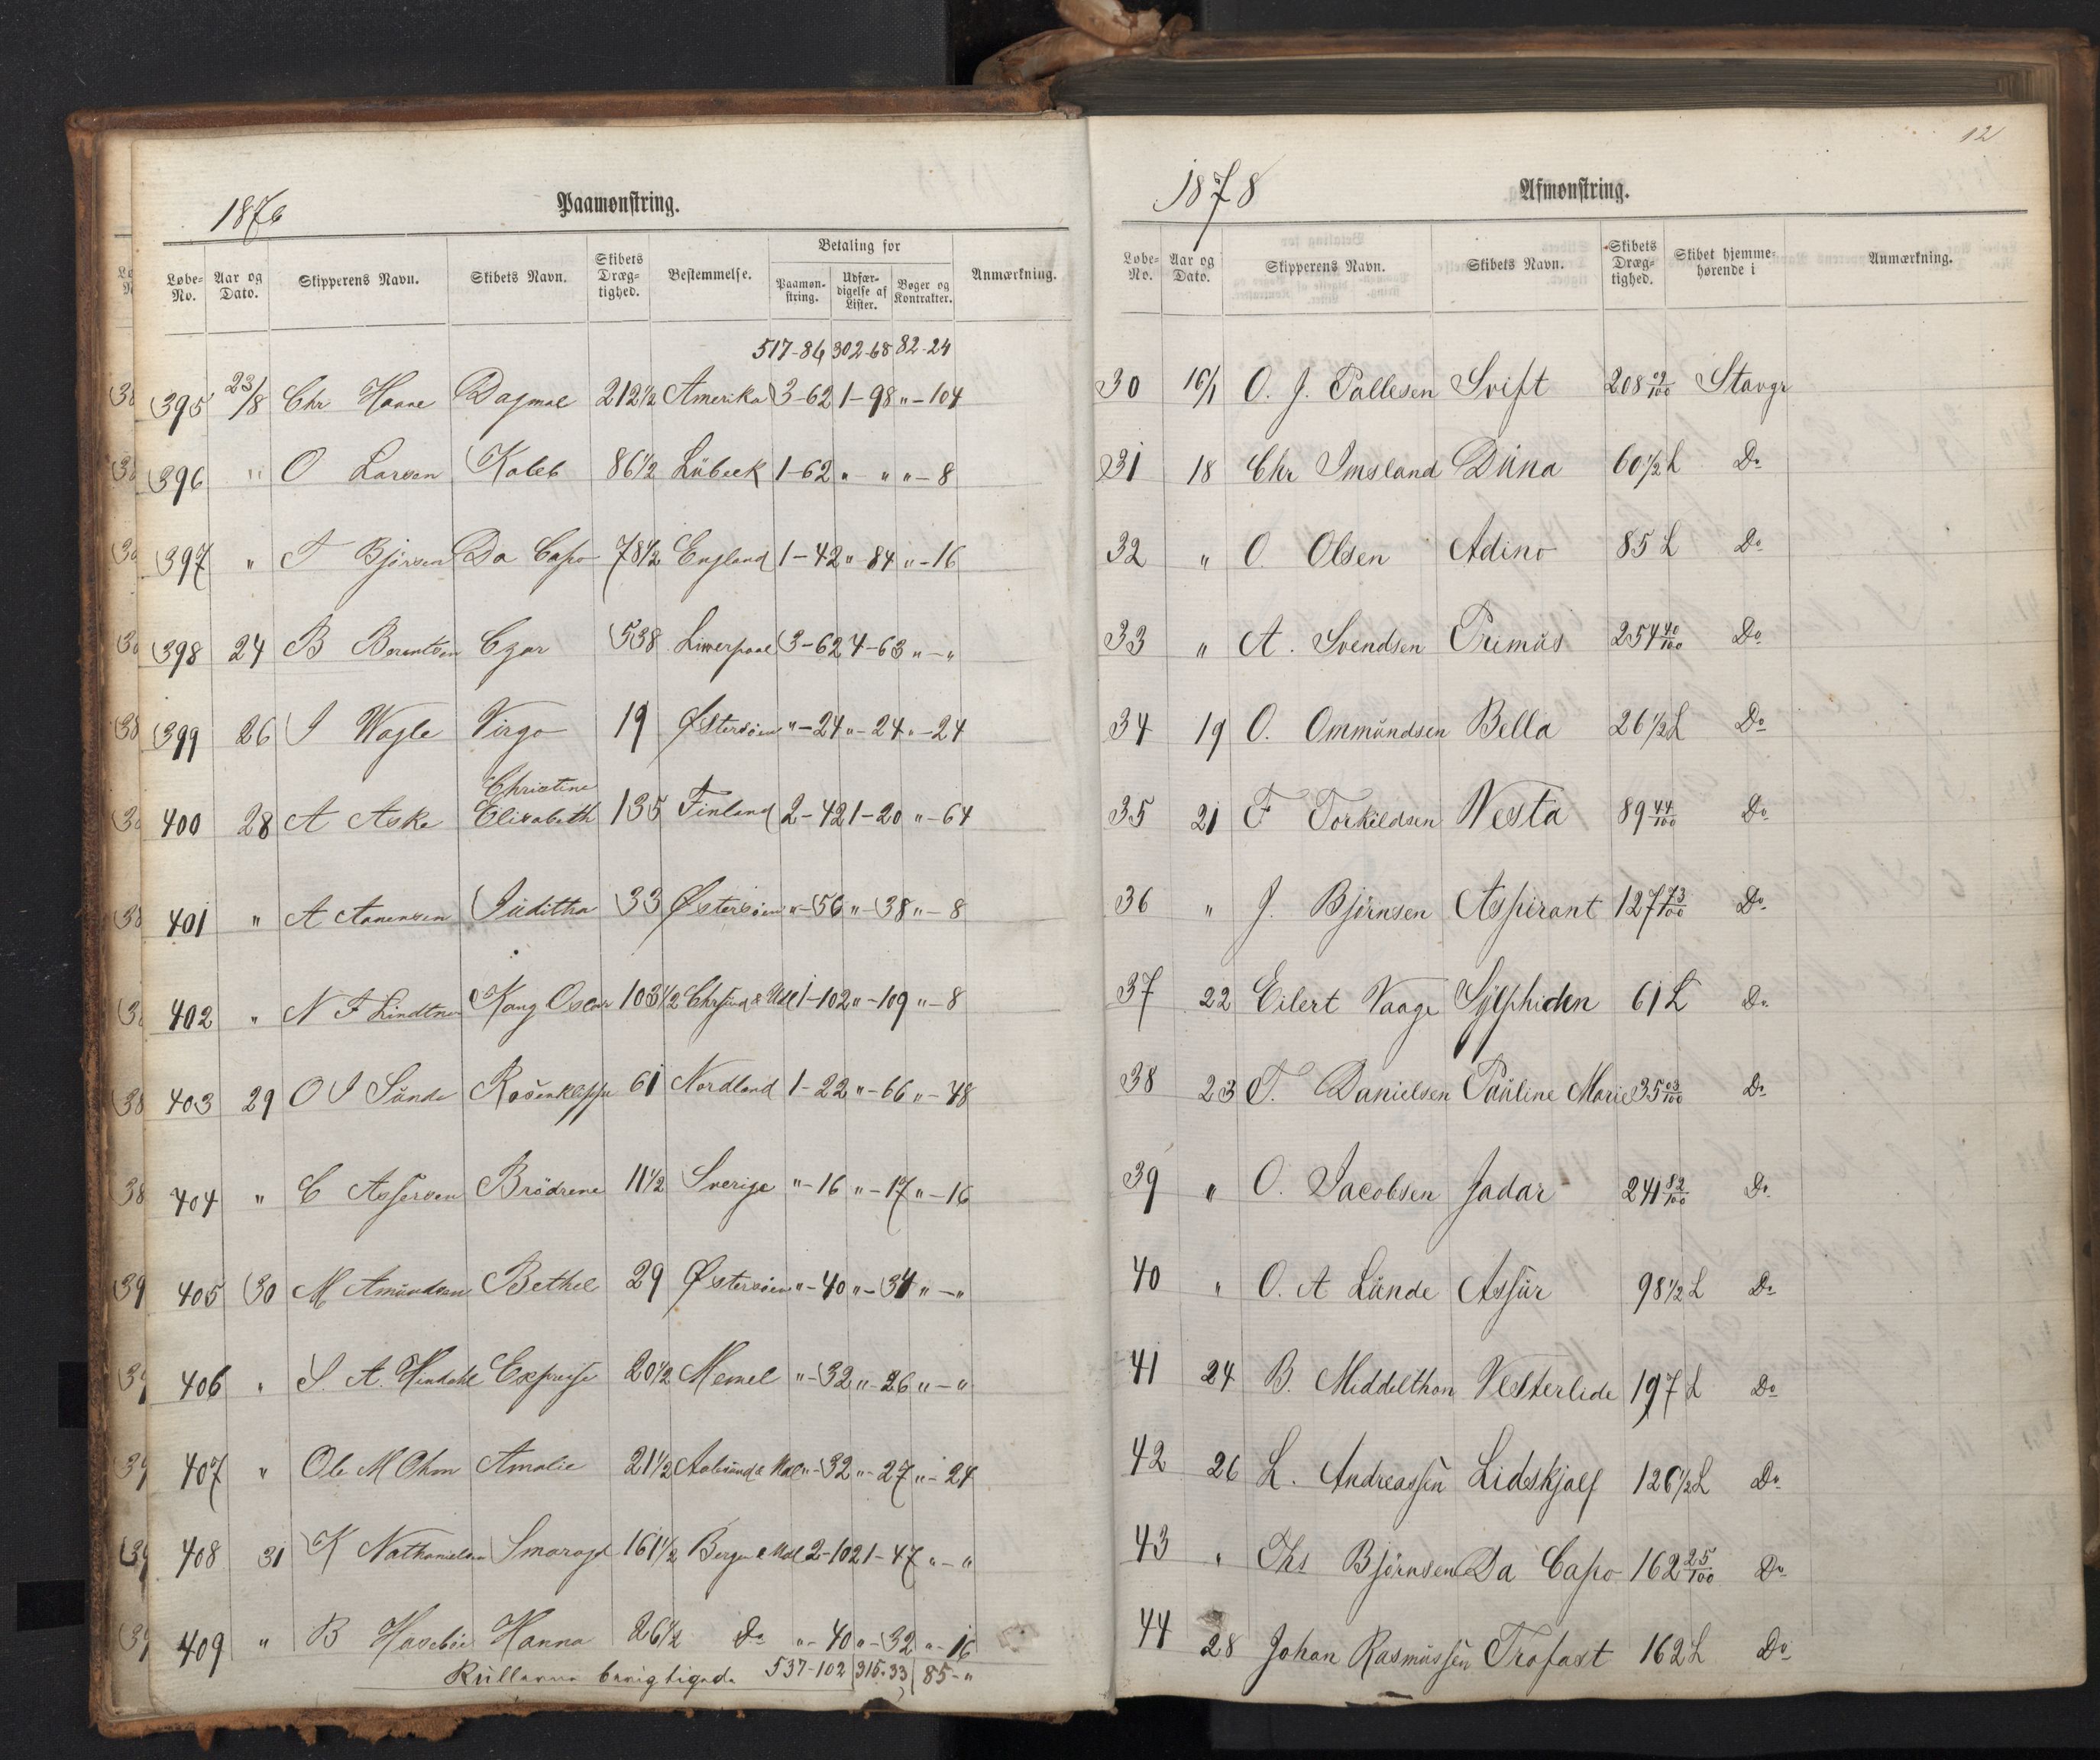 1876 Paamønstring.
Løbe-No. Aar og Dato. Skipperens Navn. Skibets Navn. Skibets Dræg-tighed. Bestemmelse. Betaling for Paamøn-string. Udfær-digelse af Lister. Bøger og Kontrakter. Anmærkning.
517-84 302-68 82-24
395 23/8 Chr Hanne Dagmar 212 1/2 Amerika 3-62 1-98 "-104
396 " O Larsen Kaleb 86 1/2 Lübeck 1-62 " " "-8
397 " T Bjørsen Da Capo 78 1/2 England 1-42 "-84 "-16
398 24 B Berentsen Czar 538 Liverpool 3-62 4-63 "-"
399 26 J Wagle Virgo 19 Østersöen "-24 "-24 "-24
400 28 A Aske Christine Elisabeth 135 Finland 2-42 1-20 "-64
401 " A Aanensen Juditha 33 Østersöen "-56 "-38 "-8
402 " N F Lindtner Kong Oscar 103 1/2 Chrsund & Udl 1-102 "-109 "-8
403 29 O J Sünde Rosenkleppe 61 Nordland 1-22 "-66 "-48
404 " C Assersen Brödrene 11 1/2 Sverige "-16 "-17 "-16
405 30 M Amündsen Bethel 29 Østersöen "-40 "-34 "-"
406 " S. A. Hendahl Expresse 20 1/2 Memel "-32 "-26 "-"
407 " Ole M Ohm Amalie 21 1/2 Aalesund & Udl "-32 "-27 "-24
408 31 K Nathanielsen Smaragd 161 1/2 Bergen & Udl 2-102 1-47 "-"
409 " B Hasebøe Hanna 26 1/2 Do "-40 "-32 "-16
537-102 315-33 85-"
12
1878 Afmønstring.
Løbe-No. Aar og Dato. Skipperens Navn. Skibets Navn. Skibets Dræg-tighed. Skibet hjemme-hørende i Anmærkning.
30 16/1 O. J. Pallesen Svift 208 09/100 Stavgr
31 18 Chr Imsland Düna 60 1/2 L Do
32 " O. Olsen Adino 85 L Do
33 " A. Svendsen Primüs 254 40/100 Do
34 19 O. Ommündsen Bella 26 1/2 L Do
35 21 F Torkildsen Vesta 89 44/100 Do
36 " J. Björnsen Aspirant 127 73/100 Do
37 22 Eilert Vaage Sylphiden 61 L Do
38 23 T. Danielsen Paüline Marie 35 03/100 Do
39 " O. Jacobsen Jadar 241 82/100 Do
40 " O. A Lünde Assür 98 1/2 L Do
41 24 B. Middelthon Vesterlide 197 L Do
42 26 L. Andreassen Lidskjalf 126 1/2 L Do
43 " Ths Björnsen Da Capo 162 25/100 Do
44 28 Johan Rasmüssen Trofast 162 L Do